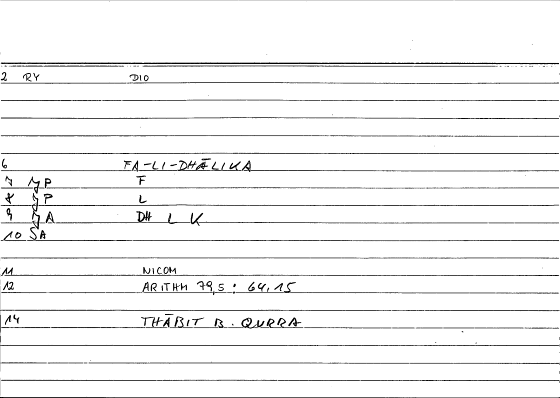 2 RY DIO
6 FA-LI-DHĀLIKA
7 JP F
8 JP L
9 JA DH L K
10 SA
11 NICOM
12 ARITHM 79,5 : 64,15
14 THĀBIT B. QURRA